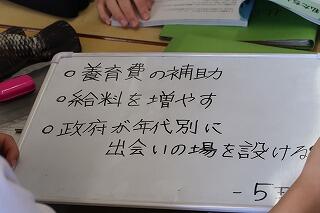 ○養育費の補助
○給料を増やす
○政府が年代別に
出会いの場を設ける
- 5
私たち